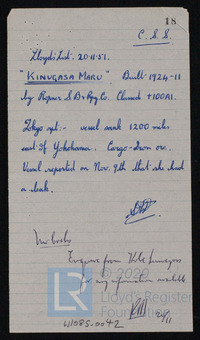 18
C. S. S.
Lloyd's List. 20.11.51.
"KINUGASA MARU" Built 1924-11
by Repair S.B. & Rpg Co. Classed +100A1.
Tokyo rpt:- vessel sank 1200 miles
east of Yokohama. Cargo-Iron ore.
Vessel reported on Nov. 9th that she had
a leak.
Enquire from Kobe Surveyors
for any information available
© 2020
LR
Lloyd's Register
Foundation
W1085-0042